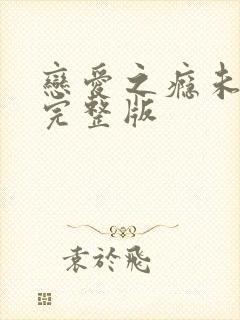 戀愛之癮未
完整版
袁於飛